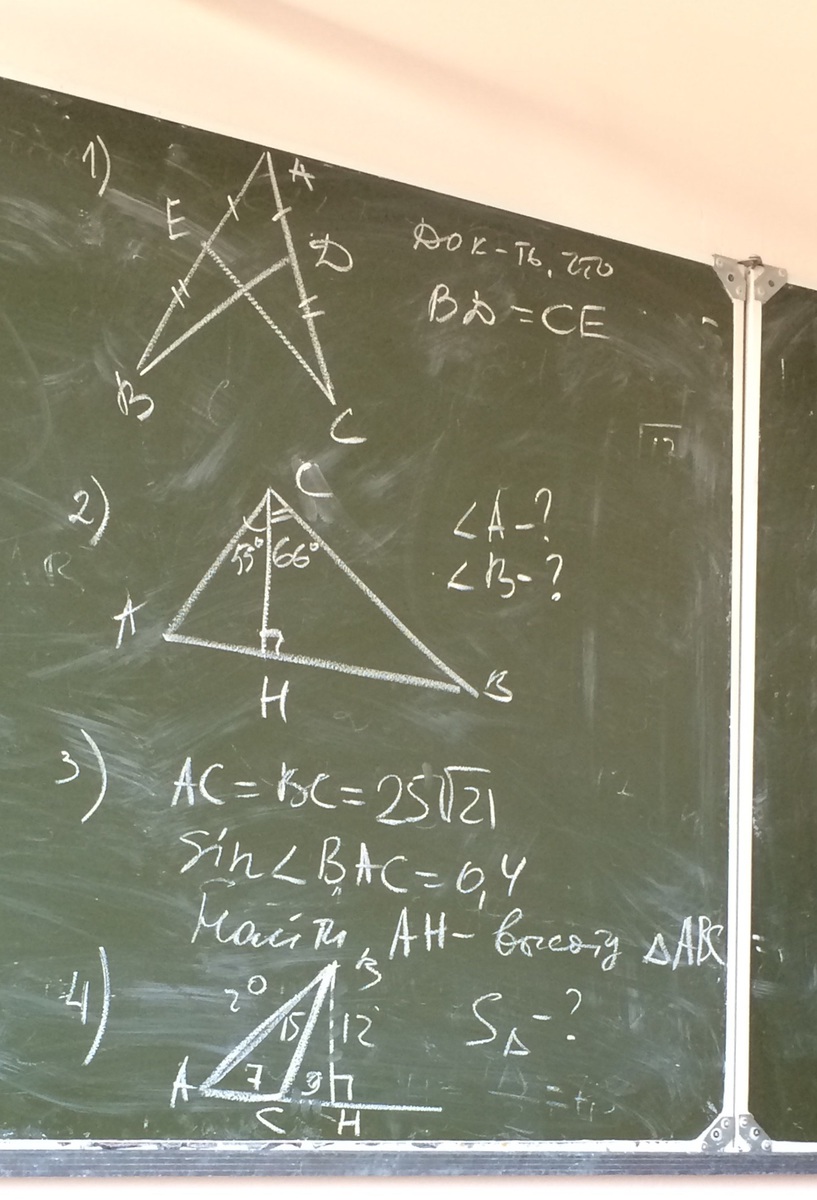 1)
A
E
D
B
C
Док-ть, что
BD = CE
2)
C
66°
A
H
B
∠A - ?
∠B - ?
3)
AC = BC = 25√21
Sin∠BAC = 0,4
Найти AH - высоту △ABC
4)
B
20
15
12
A
7
9
C
H
S△ - ?